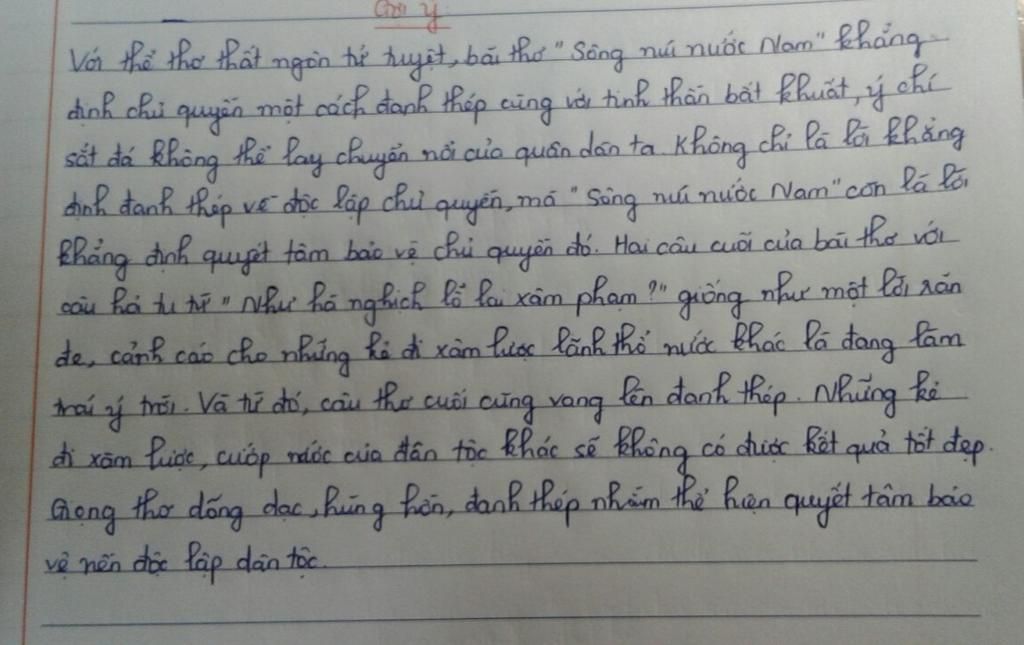 Gợi ý
Với thể thơ thất ngôn tứ tuyệt, bài thơ "Sông núi nước Nam" khẳng
định chủ quyền một cách đanh thép cùng với tinh thần bất khuất, ý chí
sắt đá không thể lay chuyển nổi của quân dân ta. Không chỉ là lời khẳng
định đanh thép về độc lập chủ quyền, mà "Sông núi nước Nam" còn là lời
khẳng định quyết tâm bảo vệ chủ quyền đó. Hai câu cuối của bài thơ với
câu hỏi tu từ "Như hà nghịch lỗ lai xâm phạm?" giống như một lời răn
đe, cảnh cáo cho những kẻ đi xâm lược lãnh thổ nước khác là đang làm
trái ý trời. Và từ đó, câu thơ cuối cùng vang lên đanh thép. Những kẻ
đi xâm lược, cướp nước của dân tộc khác sẽ không có được kết quả tốt đẹp.
Giọng thơ dõng dạc, hùng hồn, đanh thép nhằm thể hiện quyết tâm bảo
vệ nền độc lập dân tộc.